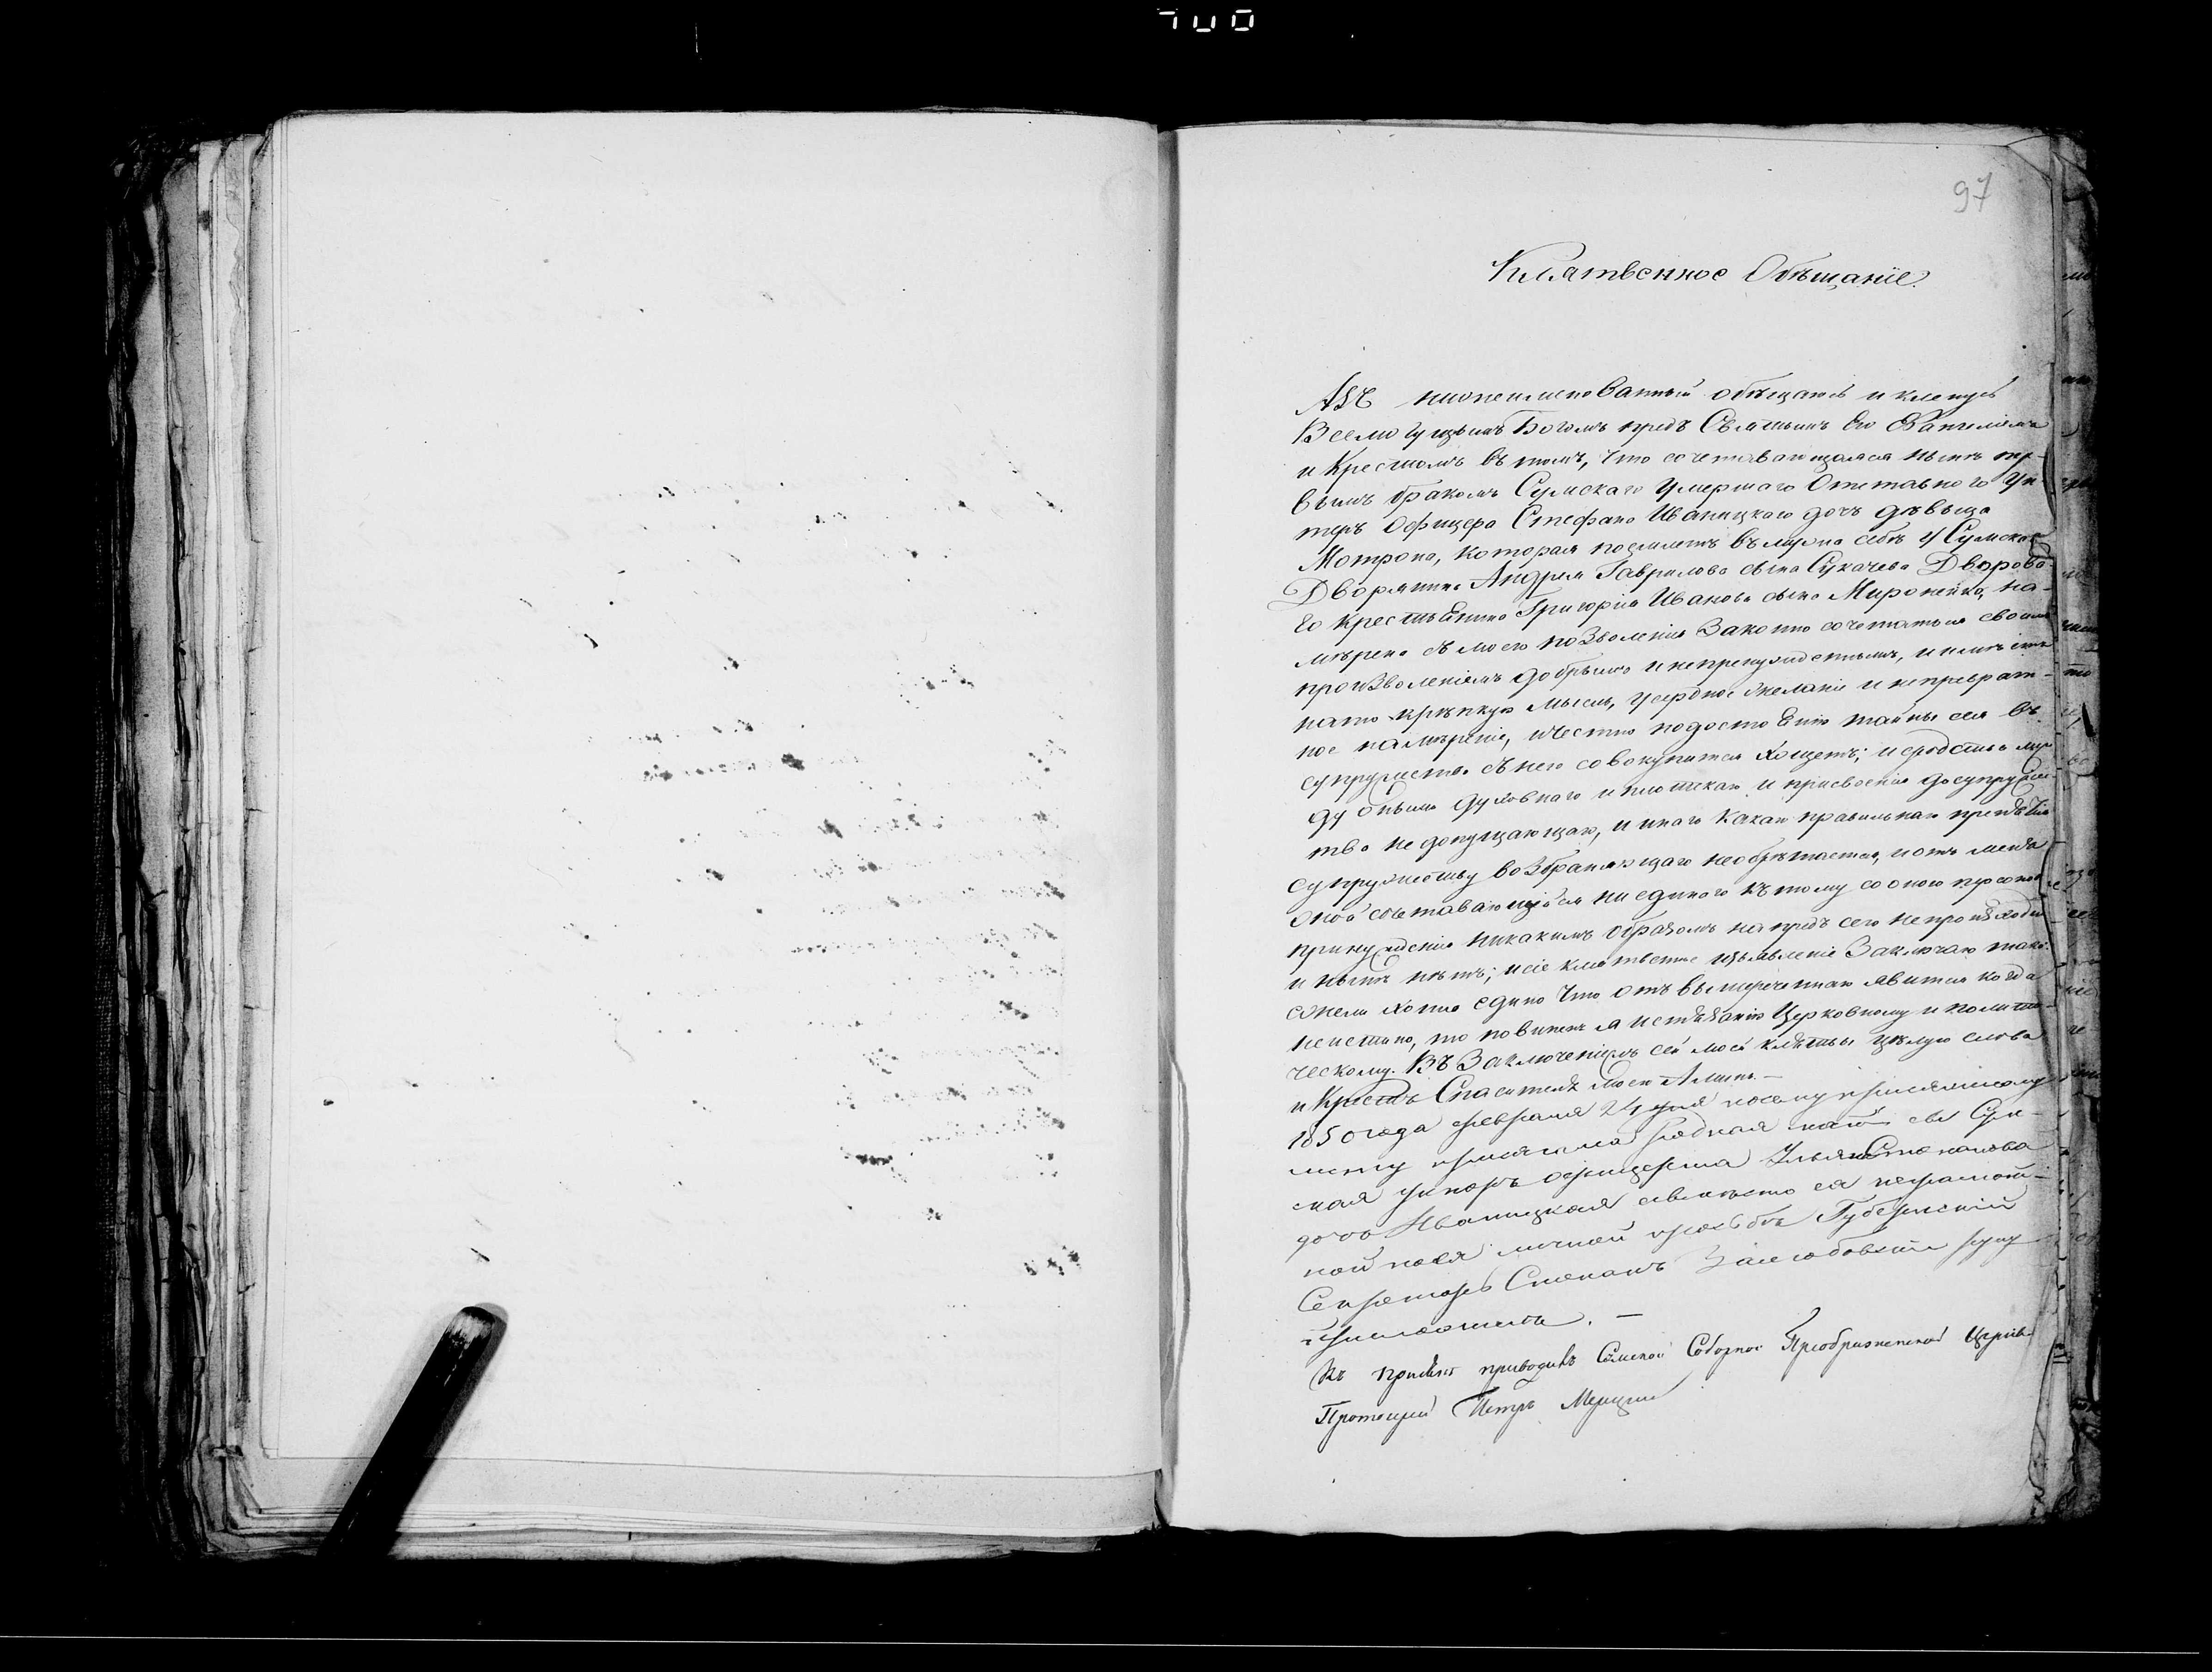 97
Клятвенное Обѣщаніе.
Азъ нижепимѣнованный обѣщаюсь и клянусь
Всемогущимъ Богомъ предъ Святымъ Его Евангеліемъ
и Крестомъ въ томъ, что сочетавающаяся нынѣ пер-
вымъ бракомъ Сумскаго умершаго Отставного Ун-
теръ Офицера Стефана Иваницкаго дочъ дѣвыца
Мотрона, которая поемлетъ въ мужа себѣ Сумскаго
Дворянина Андрея Гаврилова сына Сукачева Дворова-
го крестьЕнина Григорія Иванова сына Мироненка, на-
мѣрена съ моего позволенія Законно сочетаться своимъ
произволеніемъ добрымъ и непренужденнымъ, и имѣетъ
нато крѣпкую мысль, усердное желаніе и непреврат-
ное намѣреніе, и честно подостоЕнію тайны сея въ
супружество съ него совокупится хощетъ; и сродства меж-
ду оными духовнаго и плотскаго и присвоенія до супружес-
тва не допущающаго, и инаго какаго правильнаго препятія
супружеству возбраняющаго необрѣтается, и отъ меня
оной сочетавающійся ни единого къ тому со оною персоною
принужденія никакимъ образомъ напредъ сего непроизходило
и нынѣ нѣтъ; и сіе клятвенное изъявленіе Заключаю тако:
ежели хотя едино что отъ вышереченнаго явится когда
неистинно, то повиненъ я истязанію Церковному и полити-
ческому. Въ Заключеніемъ сей моей клятвы цѣлую слова
и Крестъ Спасителя Моего Аминь.—
1850 года февраля 24 дня по сему присяжному
листу присягала родная мать ея Сум-
ская унтеръ офицерша Ульяна Степанова
дочь Иваницкая а вмѣсто ея неграмот-
ной по ея личной прозьбѣ Губернскій
Секретарь Степанъ руку
приложилъ. —
Къ присягѣ приводилъ Сумской Соборной Преображенской Церкви
Протоіерей Петръ